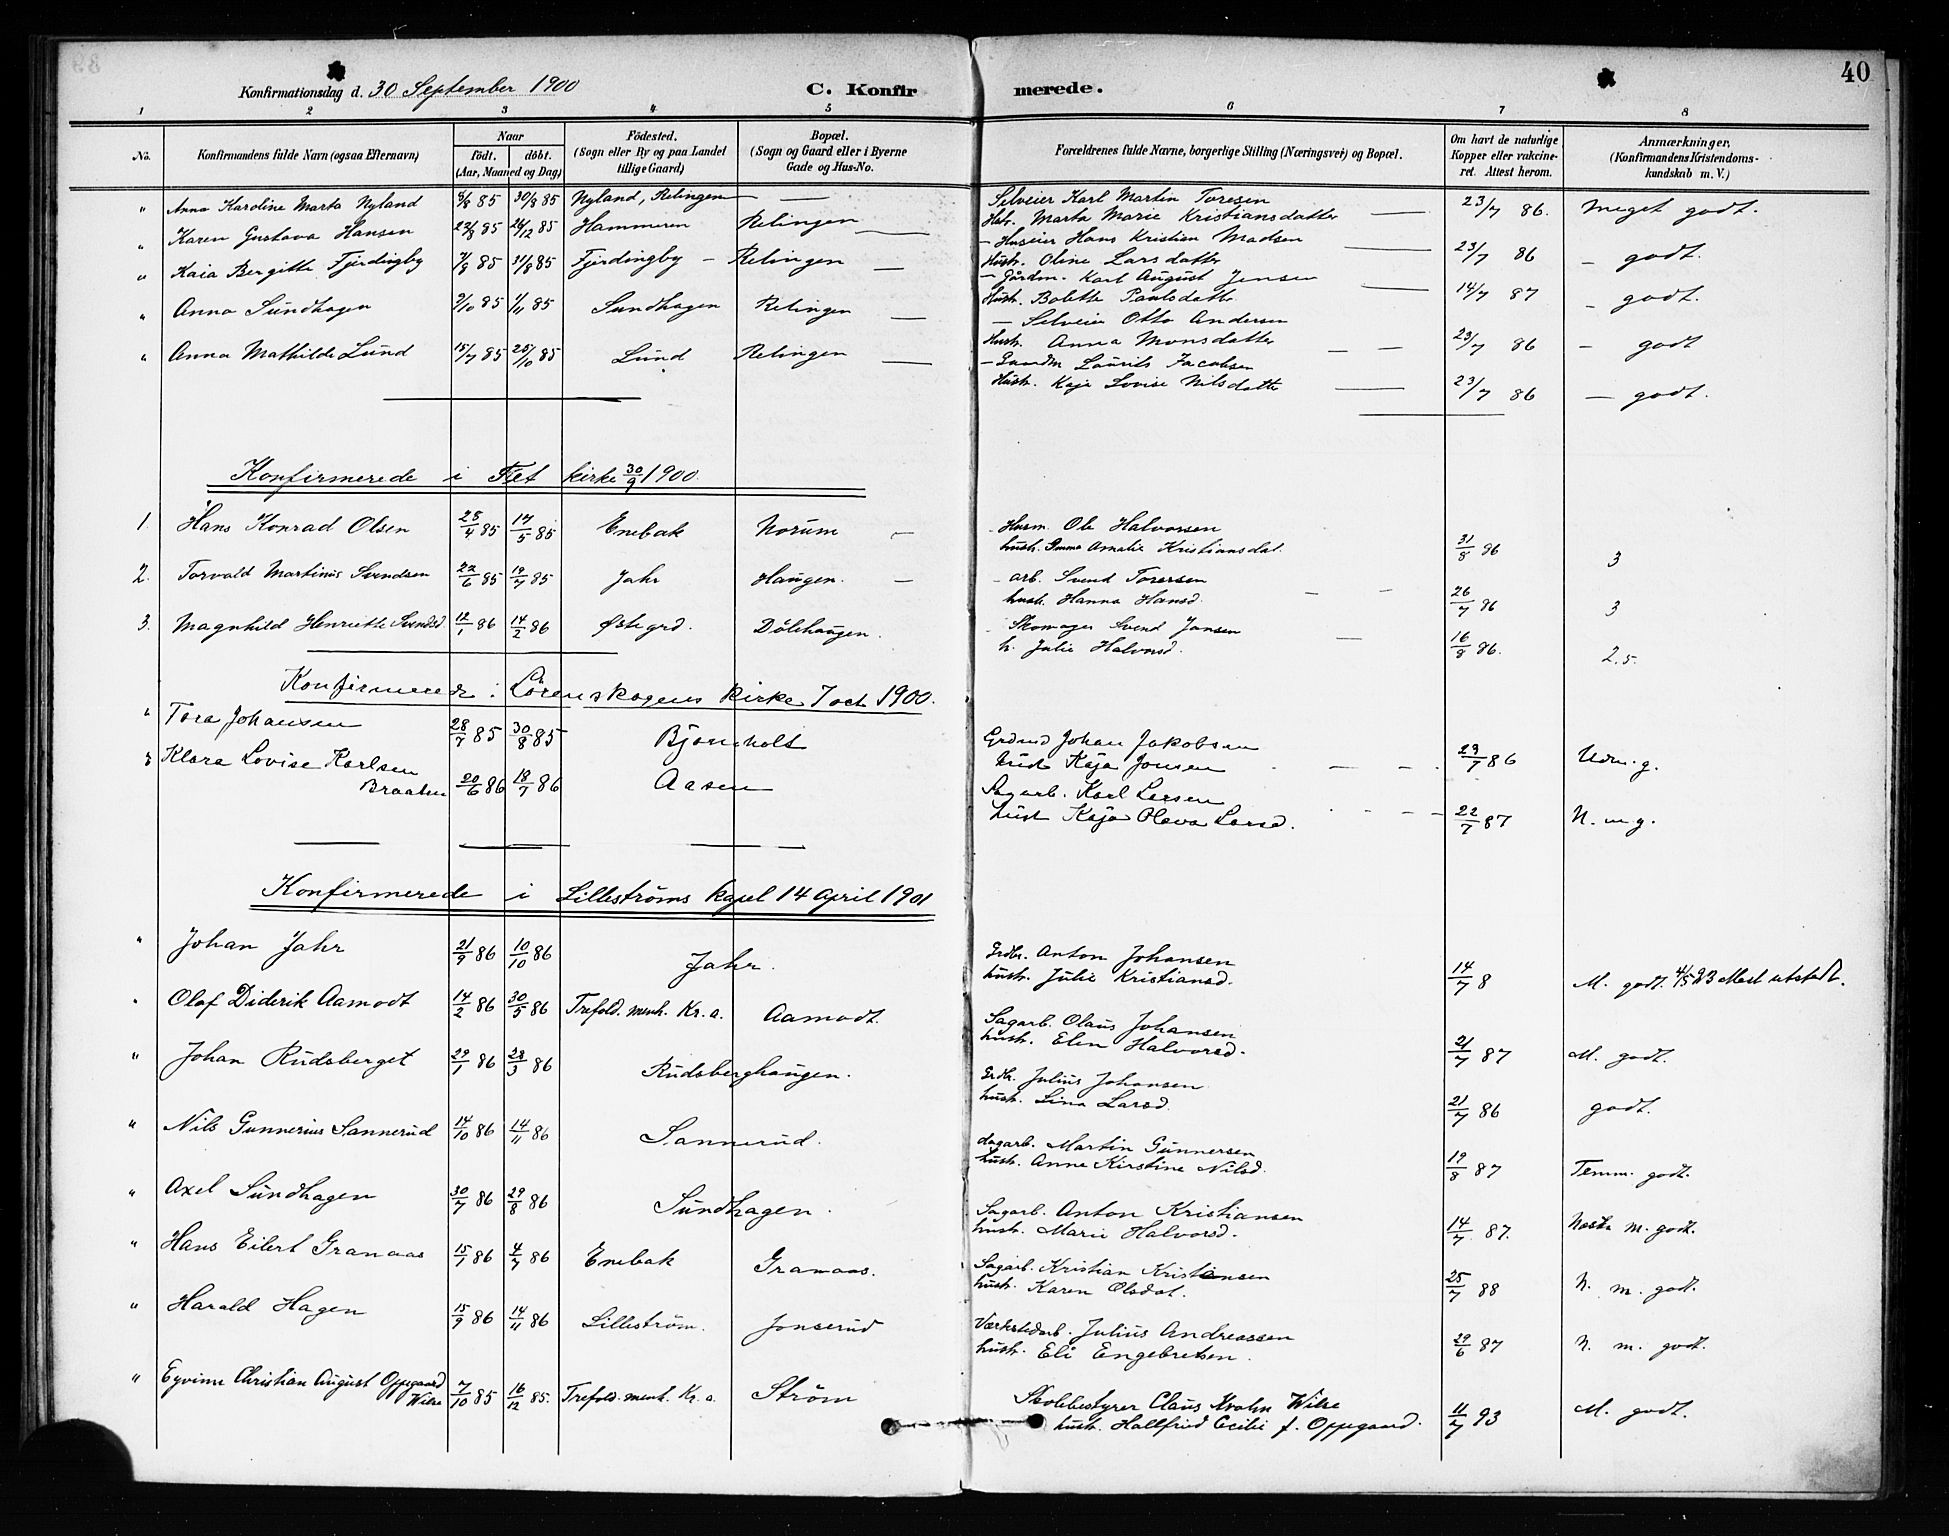 40
Konfirmationsdag d. 30 September 1900
C. Konfirmerede.
1 2 3 4 5 6 7 8
No. Konfirmandens fulde Navn (ogsaa Efternavn) Naar födt. döbt. (Aar, Maaned og Dag) Födested. (Sogn eller By og paa Landet tillige Gaard) Bopæl. (Sogn og Gaard eller i Byerne Gade og Hus-No. Forældrenes fulde Navne, borgerlige Stilling (Næringsvei) og Bopæl. Om havt de naturlige Kopper eller vakcineret. Attest herom. Anmærkninger, (Konfirmandens Kristendomskundskab m. V.)
" Anna Karoline Marta Nyland 6/8 85 30/8 85 Nyland, Relingen — Selveier Karl Martin Toresen
Hst. Marta Marie Kristiansdatter — 23/7 86. meget godt.
" Karen Gustava Hansen 23/8 85 26/12 85 Hammeren Relingen — Huseier Hans Kristian Madsen
Hustr. Oline Larsdatter — 23/7 86 — godt.
" Kaia Bergitte Fjerdingby 7/8 85 31/8 85 Fjerdingby — Relingen — Gårdm. Karl August Jensen
Hustr. Bolette Paulsdatter — 14/7 87 — godt.
" Anna Sundhagen 2/10 85 1/11 85 Sundhagen Relingen — Selveier Otto Andersen
Hustr. Anna Monsdatter — — 23/7 86 — godt
" Anna Mathilde Lund 15/7 85 25/10 85 Lund Relingen — Laurits Jacobsen
Hustr. Kaja Lovise Nilsdatter — 23/7 86 — godt.
Konfirmerede i Fet kirke 30/9 1900.
1. Hans Konrad Olsen 25/4 85 17/5 85 Enebak Norum — Husm. Ole Halvorsen
hustr. Emma Amalie Kristiansdat. 31/8 86 3
2. Torvald Martinus Svendsen 22/6 85 19/7 85 Jahr Haugen. — arb. Svend Toresen
hustr. Hanna Hansd. — — 26/7 86 3
3. Magnhild Henriette Svendsd. 12/1 86 14/2 86 Østegrd. Dölehaugen. Skomager Svend Jansen
h. Julie Halvorsd. — 16/8 86. 2.5.
Konfirmerede i Lörenskogens kirke 7 oct. 1900.
Tora Johansen 28/7 85 30/8 85 Bjørnholt Grdmd Johan Jakobsen
hust Kaja Jonsen — — 23/7 86 Udm. g.
Klara Lovise Karlsen
Braaten 20/6 86 18/7 86 Aasen Sagarb. Karl Larsen
hust Kaja Olava Larsd. — — 22/7 87 N. m g.
Konfirmerede i Lilleströms kapel 14 April 1901
" Johan Jahr 21/9 86 10/10 86 Jahr. Grdbr. Anton Johansen
hustr. Julie Kristiansd. 14/7 8 M. godt. 4/5 23 Attest utstedt.
" Olaf Diderik Aamodt 14/2 86 30/5 86 Trefold. menh. Kr.a. Aamodt. Sagarb. Olaus Johansen
hustr. Elen Halvorsd. 21/7 87 M. godt.
" Johan Rudsberget 29/1 86 28/3 86 Rudsberghaugen. Grdbr. Julius Johansen
hustr. Lina Larsd. 21/7 86 godt.
" Nils Gunnerius Sannerud 14/10 86 14/11 86 Sannerud. dagarb. Martin Gunnersen
hustr. Anne Kirstine Nilsd. 19/8 87 Temm. godt.
" Axel Sundhagen 30/7 86 29/8 86 Sundhagen. Sagarb. Anton Kristiansen
hustr. Marie Halvorsd. 14/7 87. Næsten m. godt.
" Hans Eilert Granaas 15/1 86 4/7 86 Enebak Granaas. Sagarb. Kristian Kristiansen
hustr. Karen Olsdat. 25/7 88 N. m. godt.
" Harald Hagen 15/9 86 14/11 86 Lilleström. Jonserud Værkstedarb. Julius Andreassen
hustr. Eli Engebretsen. 29/6 87 N. m. godt.
" Eyvinn Christian August Oppegaard
Wilse 7/10 85 16/12 85. Trefold. menh. Kr.a. Ström Skolebestyrer Claus Wilse
hustr. Hallfrid Cecilie f. Oppegaard. 11/7 93 M. godt.